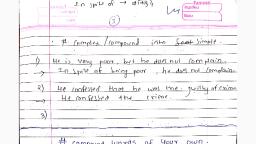 In spite of → drugs
③
# complex/compound into simple.
1) He is very poor, but he does not complain.
→ In spite of being poor, he does not complain.
2) He confessed that he was the guilty of crime
→ He confessed the crime
3)
# compound words of your own.